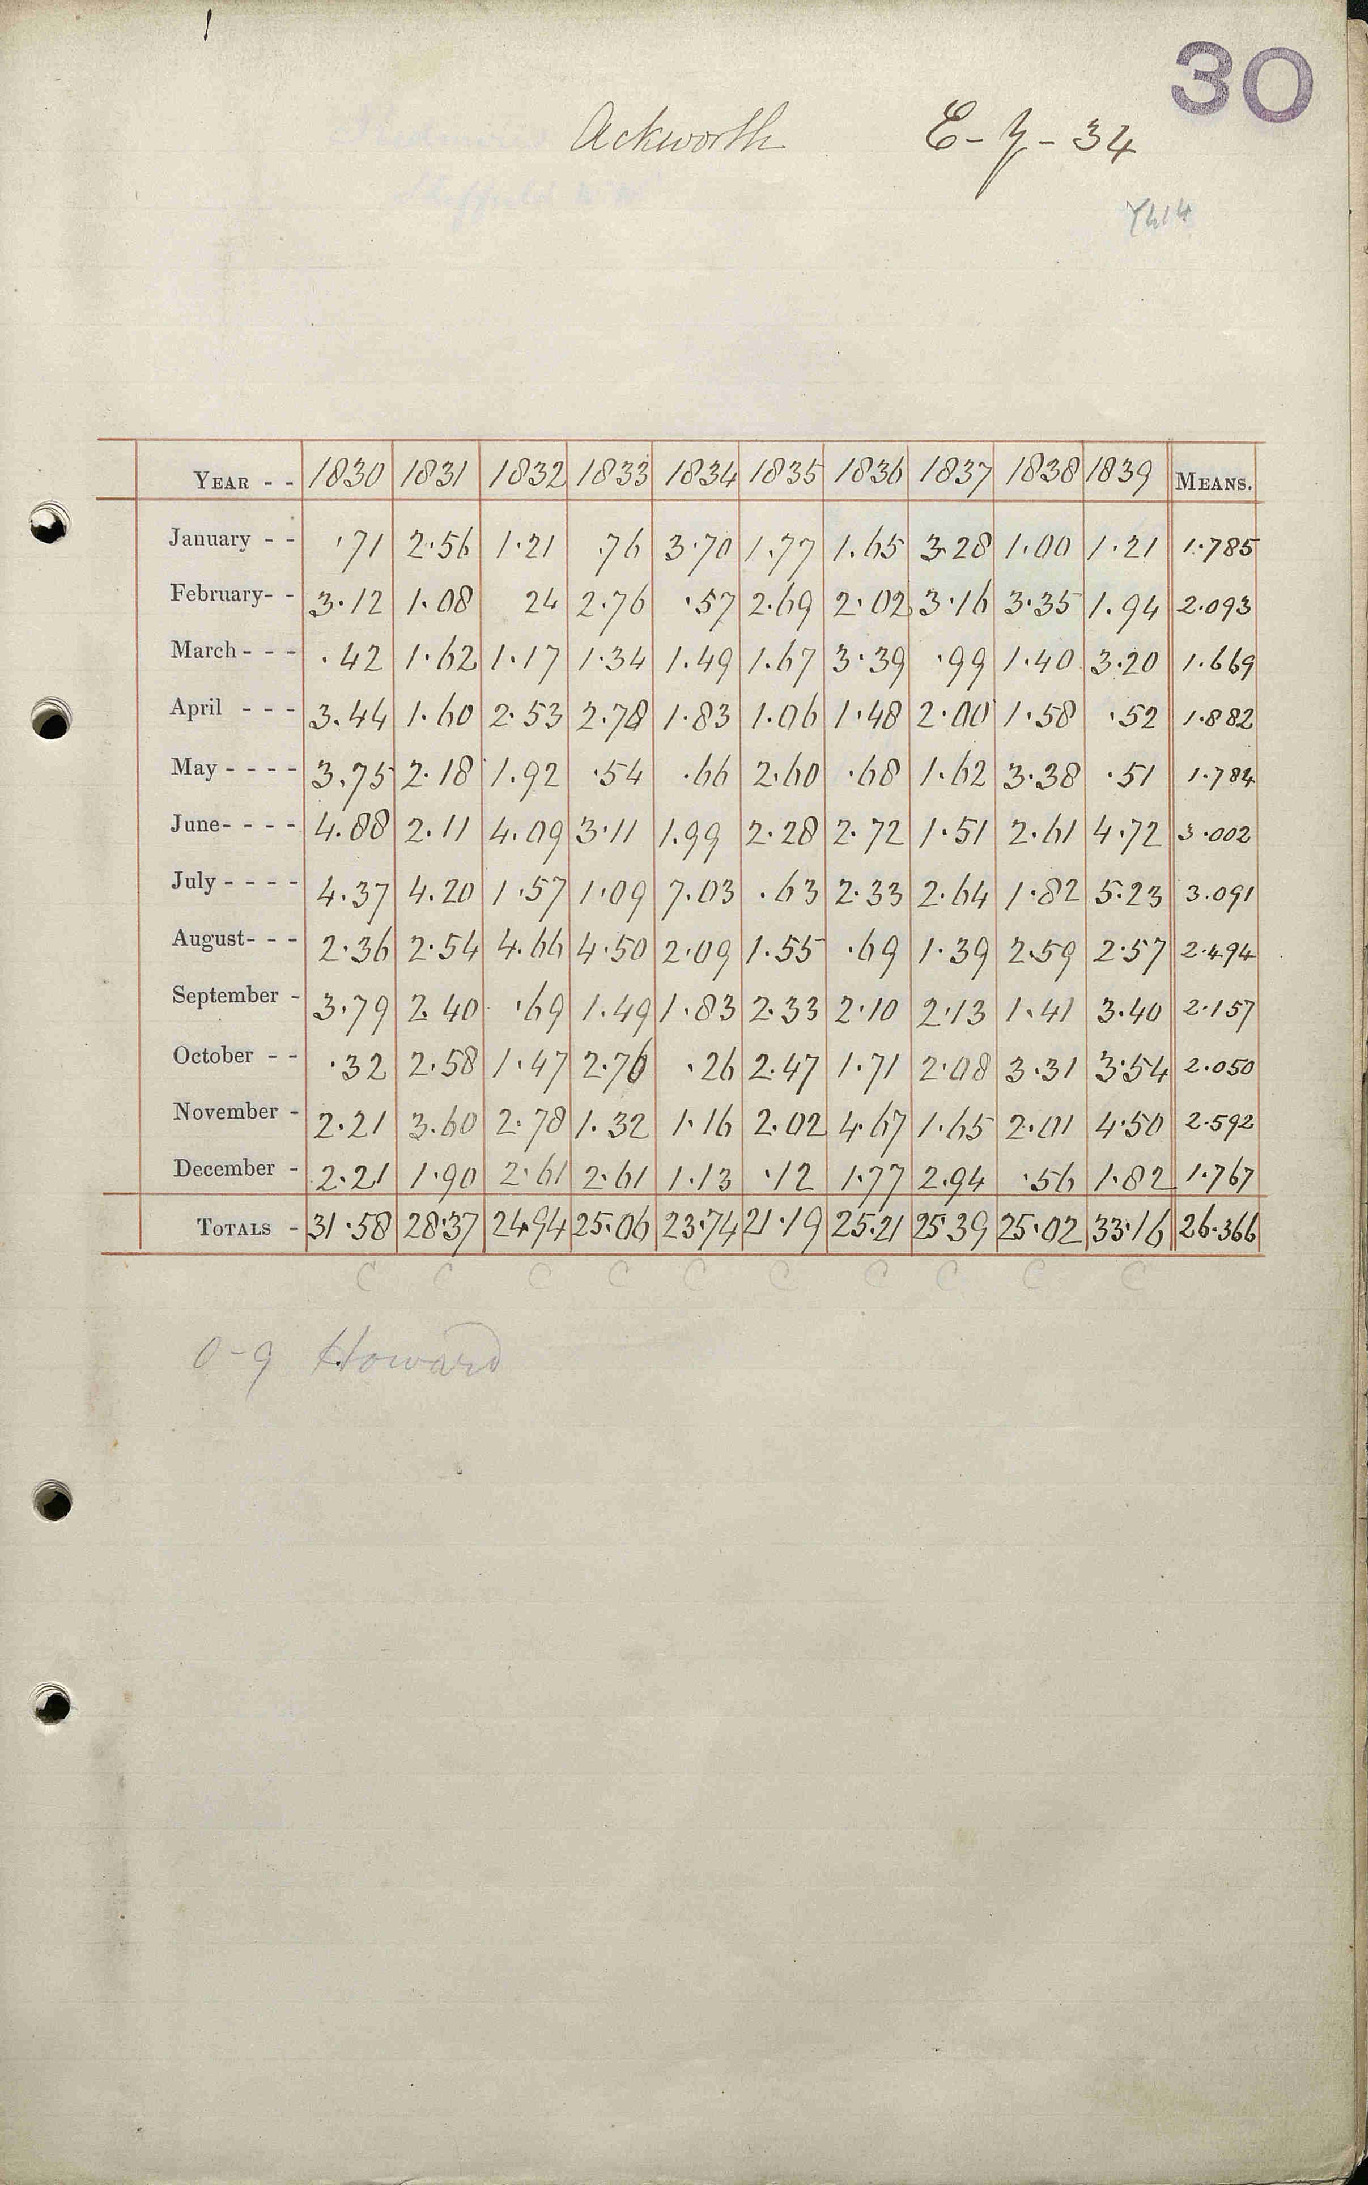 30
Ackworth E-y-34
YEAR - - 1830 1831 1832 1833 1834 1835 1836 1837 1838 1839 MEANS.
January - - ·71 2·56 1·21 .76 3·70 1.77 1.65 3·28 1.00 1·21 1·785
February- - 3·12 1.08 24 2·76 ·57 2.69 2·02 3·16 3·35 1.94 2·093
March - - - .42 1·62 1·17 1·34 1.49 1.67 3·39 ·99 1·40 3·20 1·669
April - - - 3.44 1.60 2·53 2·78 1·83 1·06 1·48 2·00 1·58 ·52 1·882
May - - - - 3.75 2·18 1.92 ·54 ·66 2·60 ·68 1·62 3·38 ·51 1·784
June- - - - 4.88 2·11 4.09 3·11 1.99 2·28 2·72 1·51 2·61 4·72 3·002
July - - - - 4·37 4.20 1·57 1·09 7.03 ·63 2·33 2·64 1·82 5·23 3·091
August- - - 2·36 2·54 4·66 4·50 2·09 1·55 ·69 1·39 2·59 2·57 2·494
September - 3·79 2.40 ·69 1.49 1·83 2·33 2·10 2·13 1·41 3·40 2·157
October - - ·32 2·58 1·47 2·76 ·26 2·47 1·71 2·08 3·31 3·54 2·050
November - 2·21 3·60 2·78 1·32 1·16 2·02 4·67 1·65 2·01 4·50 2·592
December - 2·21 1·90 2·61 2·61 1·13 ·12 1·77 2.94 ·56 1·82 1·767
TOTALS - 31·58 28·37 24.94 25·06 23·74 21·19 25·21 25·39 25·02 33·16 26·366
C C C C C C C C C C
0-9 Howard